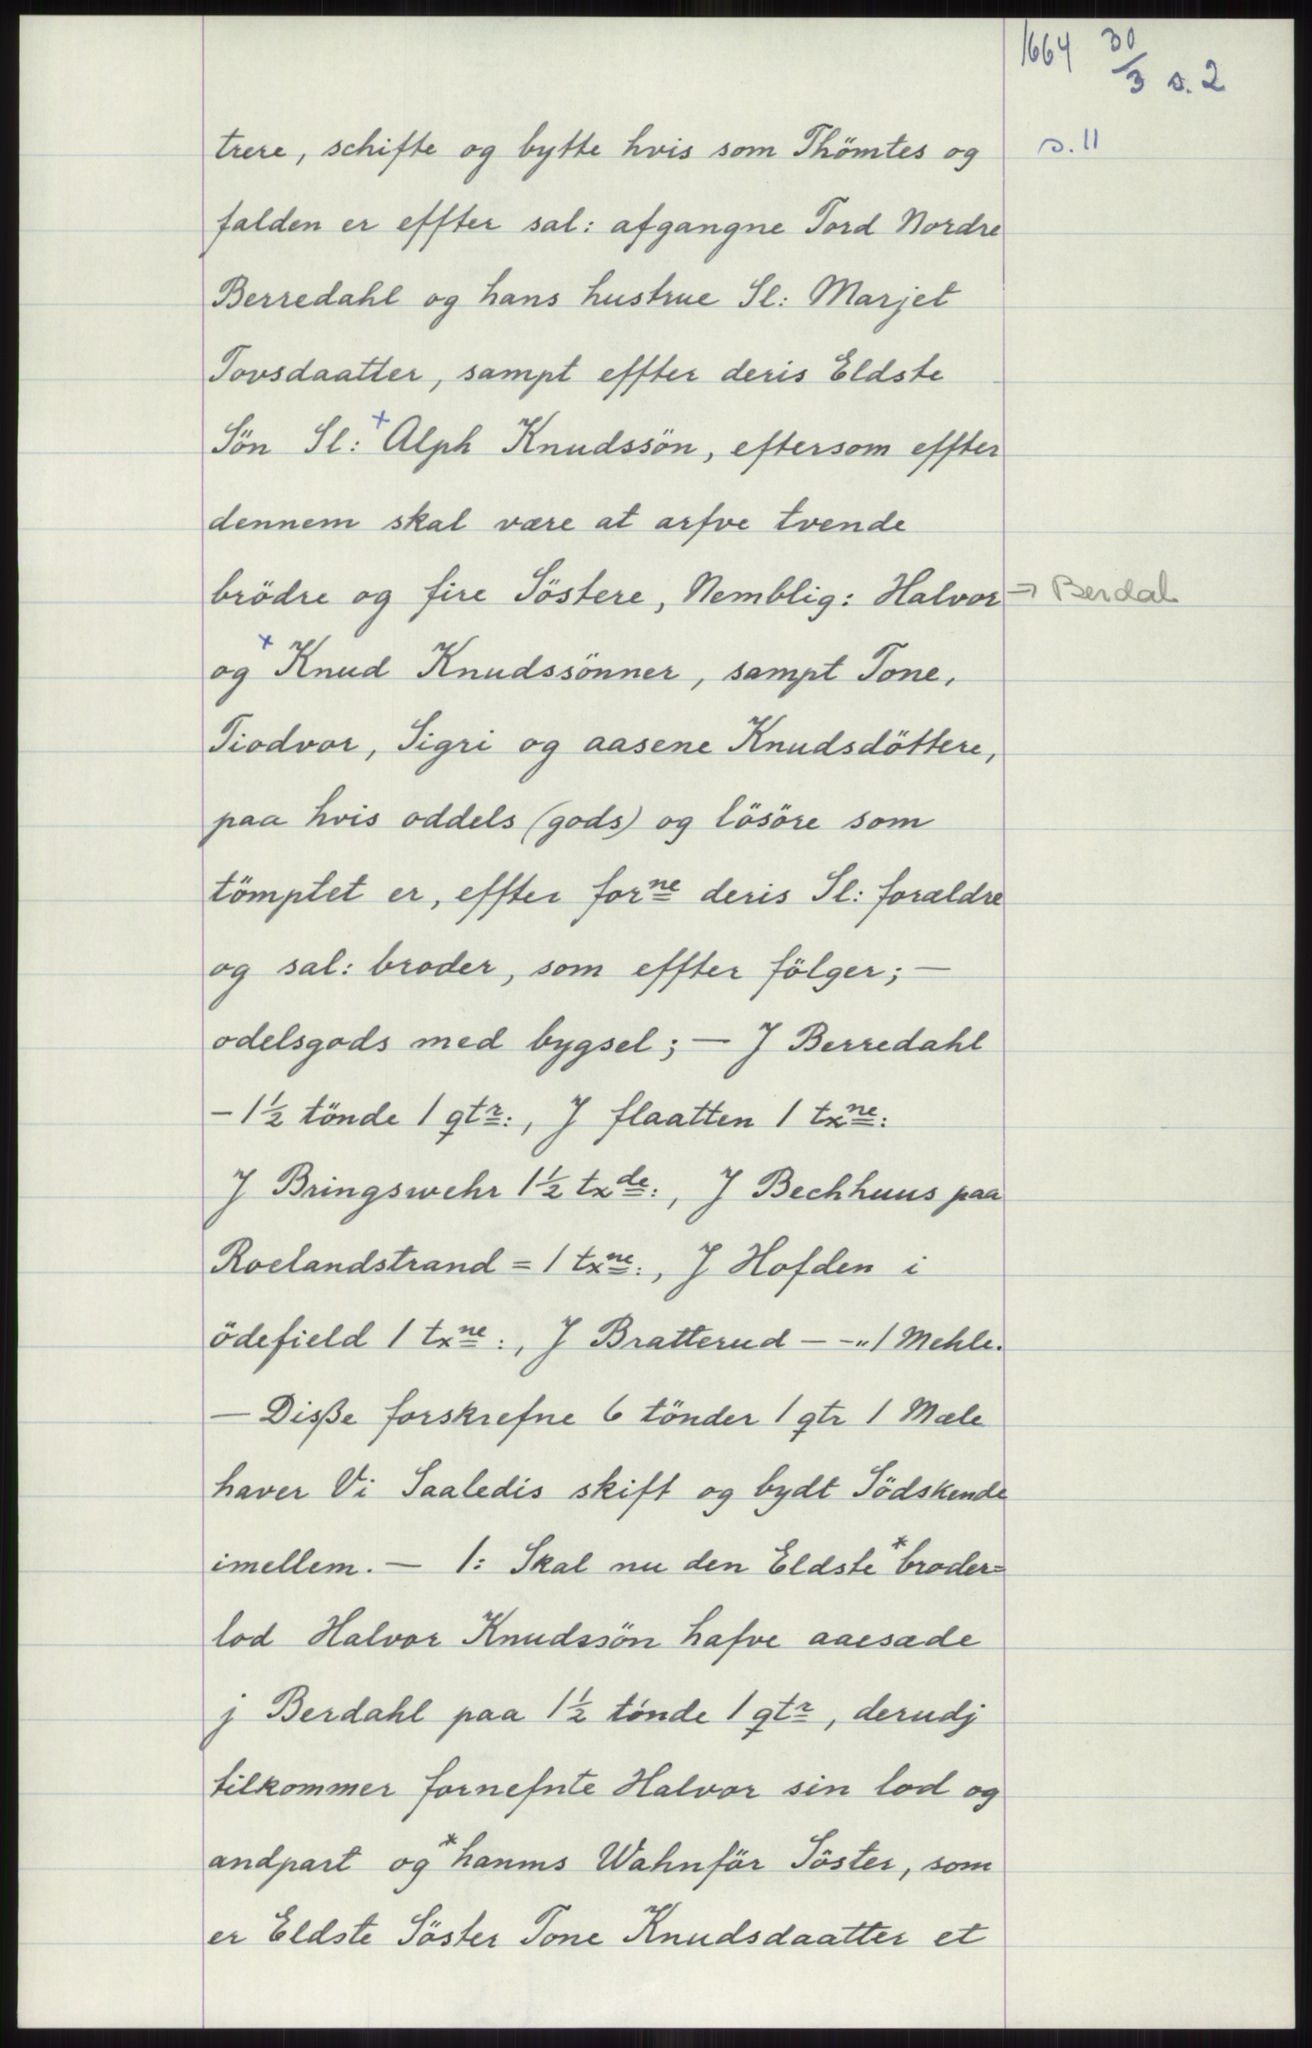 1664 30/3 s. 2
s. 11
trere, schifte og bytte hvis som Thömtes og
falden er effter sal: afgangne Tord Nordre
Berredahl og hans hustrue Sl: Marjet
Tovsdaatter, sampt effter deris Eldste
Sön Sl: + Alph Knudssön, eftersom effter
dennem skal være at arfve tvende
brödre og fire Söstere, Nemblig: Halvor → Berdal
og + Knud Knudssönner, sampt Tone,
Tiodvor, Sigri og aasene Knudsdöttere,
paa hvis oddels (gods) og lösöre som
tömptet er, effter forne deris Sl: forældre
og sal: broder, som effter fölger; —
odelsgods med bygsel; — J Berredahl
— 1½ tönde 1 qtr:, J flaatten 1 txne:
J Bringswehr 1½ txde:, J Bechhuus paa
Roelandstrand = 1 txne:, J Hofden i
ödefield 1 txne:, J Bratterud — -„ 1 Mehle.
— Diße forskrefne 6 tönder 1 qtr 1 Mæle
haver Vi Saaledis skift og bydt Södskende
imellem. — 1: Skal nu den Eldste * broder=
lod Halvor Knudssön hafve aaesæde
j Berdahl paa 1½ tönde 1 qtr, derudj
tilkommer fornefnte Halvor sin lod og
andpart og * hanms Wahnför Söster, som
er Eldste Söster Tone Knudsdaatter et